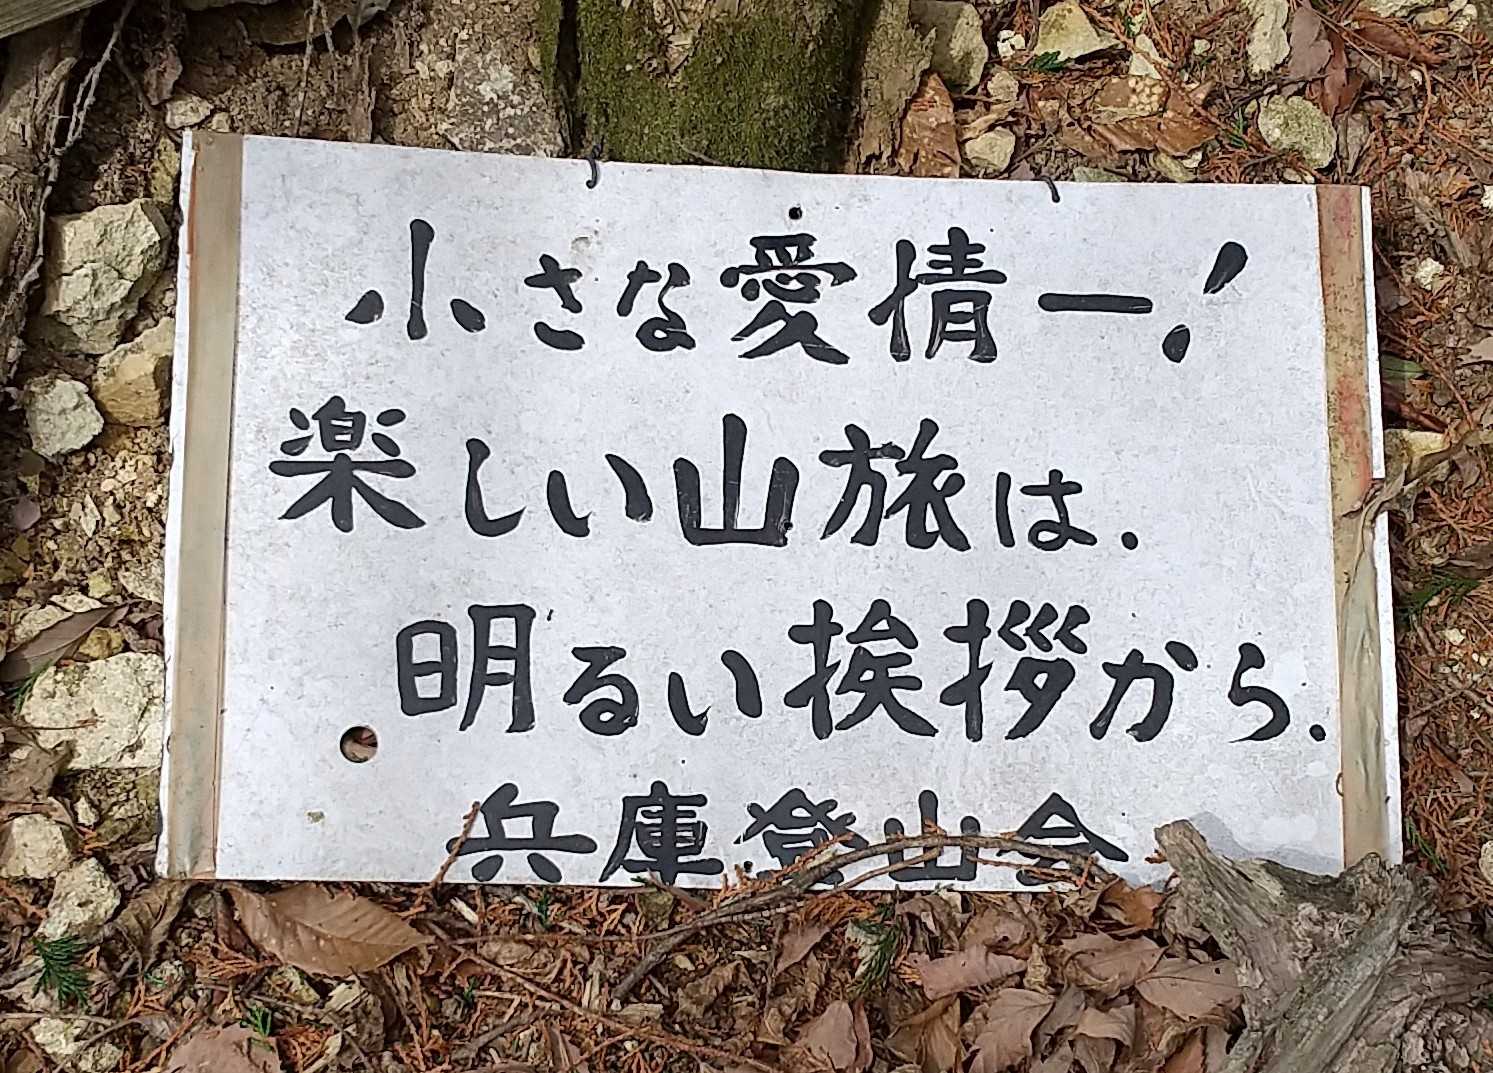 小さな愛情ー!
楽しい山旅は.
明るい挨拶から.
兵庫登山会